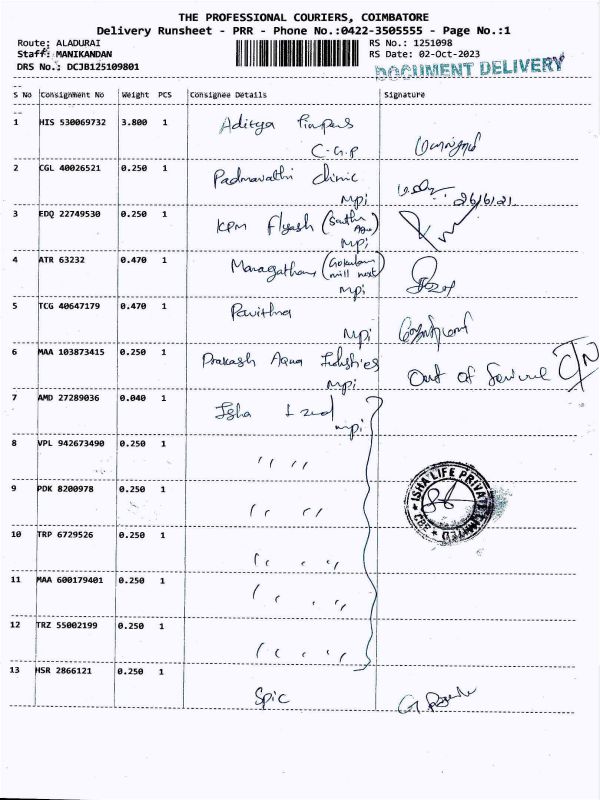 THE PROFESSIONAL COURIERS, COIMBATORE
Delivery Runsheet - PRR - Phone No.:0422-3505555 - Page No.:1
Route: ALADURAI RS No.: 1251098
Staff: MANIKANDAN RS Date: 02-Oct-2023
DRS No.: DCJB125109801 DOCUMENT DELIVERY
S No Consignment No Weight PCS Consignee Details Signature
1 HIS 530069732 3.800 1 Aditya
C-G.P
2 CGL 40026521 0.250 1 Padmavathi clinic
mpi 26/6/21
3 EDQ 22749530 0.250 1 KPM Flyash
mpi
4 ATR 63232 0.470 1 (Gokulam
mill next)
mpi
5 TCG 40647179 0.470 1 Pavithra
mpi
6 MAA 103873415 0.250 1 Prakash Aqua Industries Out of Service C/N
mpi
7 AMD 27289036 0.040 1 Isha
mpi
8 VPL 942673490 0.250 1 " "
9 PDK 8200978 0.250 1 " "
ISHA LIFE PRIVATE LIMITED
CBE
10 TRP 6729526 0.250 1 " "
11 MAA 600179401 0.250 1 " "
12 TRZ 55002199 0.250 1 " "
13 HSR 2866121 0.250 1 Spic